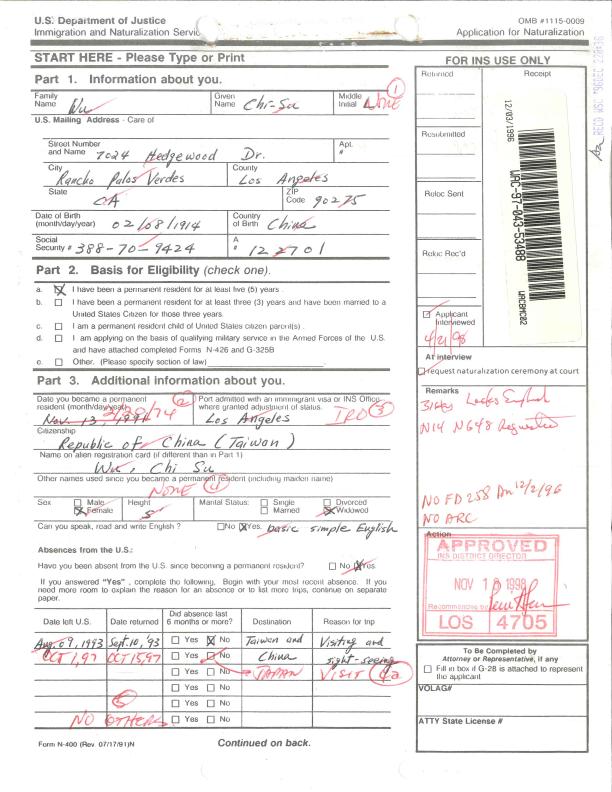 U.S. Department of Justice
Immigration and Naturalization Servic
OMB #1115-0009
Application for Naturalization
START HERE - Please Type or Print
Part 1. Information about you.
Family Name Wu
Given Name Chi-Su
Middle Initial NONE
1
U.S. Mailing Address - Care of
Street Number and Name 7024 Hedgewood Dr.
Apt. #
City Rancho Palos Verdes
County Los Angeles
State CA
ZIP Code 90275
Date of Birth (month/day/year) 02/08/1914
Country of Birth China
Social Security # 388-70-9424
A #
Part 2. Basis for Eligibility (check one).
a. I have been a permanent resident for at least five (5) years .
b. I have been a permanent resident for at least three (3) years and have been married to a
United States Citizen for those three years.
c. I am a permanent resident child of United States citizen parent(s) .
d. I am applying on the basis of qualifying military service in the Armed Forces of the U.S.
and have attached completed Forms N-426 and G-325B
e. Other. (Please specify section of law)
Part 3. Additional information about you.
Date you became a permanent resident (month/day/year)
Nov. 13,
2
Port admitted with an immigrant visa or INS Office
where granted adjustment of status.
Los Angeles
3
Citizenship
Republic of China (Taiwan)
Name on alien registration card (if different than in Part 1)
Wu, Chi Su
Other names used since you became a permanent resident (including maiden name)
NONE 4
Sex Male Female
Height 5'
Marital Status: Single Married Divorced Widowed
Can you speak, read and write English ? No Yes. basic simple English
Absences from the U.S.:
Have you been absent from the U.S. since becoming a permanent resident? No Yes.
If you answered "Yes" , complete the following, Begin with your most recent absence. If you
need more room to explain the reason for an absence or to list more trips, continue on separate
paper.
Date left U.S. Date returned Did absence last 6 months or more? Destination Reason for trip
Aug. 09, 1993 Sept. 10, '93 Yes No Taiwan and Visiting and
OCT 1, 97 OCT 15, 97 Yes No China sight-seeing
Yes No JAPAN VISIT 4a
Yes No
5 Yes No
NO OTHERS Yes No
Form N-400 (Rev 07/17/91)N
Continued on back.
FOR INS USE ONLY
Returned
Receipt
Resubmitted
Reloc Sent
Reloc Rec'd
12/03/1996
WAC-97-043-53488
Applicant Interviewed
4/21/98
At interview
request naturalization ceremony at court
Remarks
Lacks English
N14 N648 Requested
NO FD 258 12/2/96
NO ARC
Action
APPROVED
INS DISTRICT DIRECTOR
NOV 1 0 1998
Recommended by
LOS 4705
To Be Completed by
Attorney or Representative, if any
Fill in box if G-28 is attached to represent
the applicant
VOLAG#
ATTY State License #